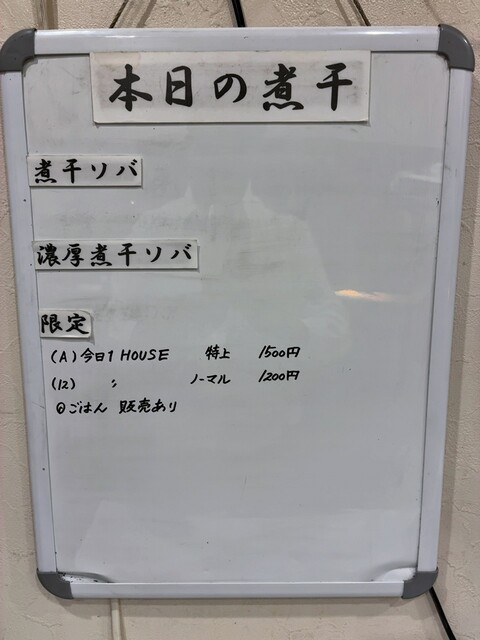 本日の煮干
煮干ソバ
濃厚煮干ソバ
限定
(A) 今日1 HOUSE 特上 1500円
(12) 〃 ノーマル 1200円
◎ごはん 販売あり